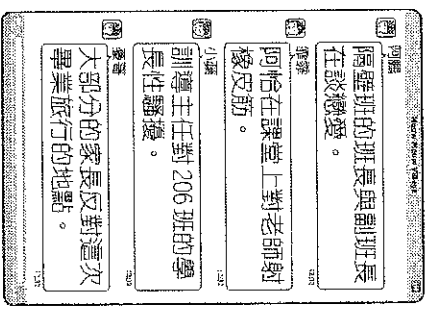 阿鵬
隔壁班的班長與副班長
在談戀愛。
阿恰在課堂上對老師射
橡皮筋。
訓導主任對 206 班的學
長性騷擾。
大部分的家長反對這次
畢業旅行的地點。